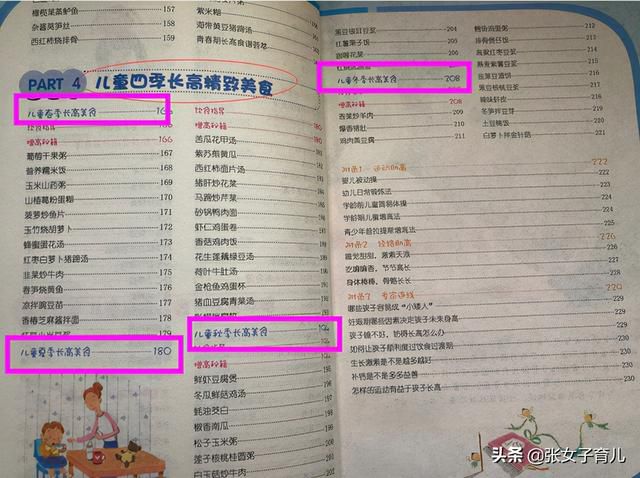 橄榄菜蒸鲈鱼 157
杂酱莴笋丝 158
西红柿烧排骨 159
紫米糊
海带黄豆猪蹄汤
青春期长高食谱荟萃
PART 4 儿童四季长高精致美食
儿童春季长高美食 166
饮食指导
增高秘籍 166
葡萄干果粥 167
苔荞糯米饭 168
玉米山药粥 169
山楂葛粉蛋糊 170
菠萝炒鱼片 171
玉竹烧胡萝卜 172
蜂蜜蛋花汤 173
红枣白萝卜猪蹄汤 174
韭菜炒牛肉 175
春笋烧黄鱼 176
凉拌豌豆苗 177
香椿芝麻酱拌面 178
179
儿童夏季长高美食 180
饮食指导
增高秘籍 180
苦瓜花甲汤
紫苏煎黄瓜
西红柿面片汤
猪肝炒花菜
马蹄炒芹菜
砂锅鸭肉面
虾仁鸡蛋卷
香菇鸡肉饭
花生莲藕绿豆汤
荷叶牛肚汤
金枪鱼鸡蛋杯
猪血豆腐青菜汤
儿童秋季长高美食 194
增高秘籍
鲜虾豆腐煲
冬瓜鲜菇鸡汤
蚝油茭白
椒香南瓜
松子玉米粥
莲子核桃桂圆粥
白玉菇炒牛肉
黑豆银耳豆浆 204
红薯栗子饭 205
咖喱花菜 206
儿童冬季长高美食 208
增高秘籍 208
香菜炒羊肉 209
爆香猪肚 210
鸡肉蒸豆腐 211
212
213
燕麦红枣豆浆 214
燕麦紫薯豆浆 215
黑豆核桃豆浆 217
辣味虾皮
冬笋拌豆芽
土豆腩饭 220
白萝卜拌金针菇 221
附录1 运动助高 222
婴儿被动操 223
幼儿日常锻炼法 224
学龄前儿童简易体操 224
学龄期儿童增高法 225
青少年趁拉提斯增高法 225
附录2 经络助高 226
睡觉甜甜，激素天涨 226
吃嘛嘛香，节节高长 227
身体棒棒，骨骼长长 228
附录3 专家连线 229
哪些孩子容易成“小矮人” 229
妊娠期哪些因素决定孩子未来身高 229
孩子睡不好，妨碍长高怎么办 229
如何让孩子顺利度过饮食过渡期 230
生长激素是不是越多越好 230
补钙是不是多多益善 230
怎样的运动有益于孩子长高 230
头条 @张女子育儿